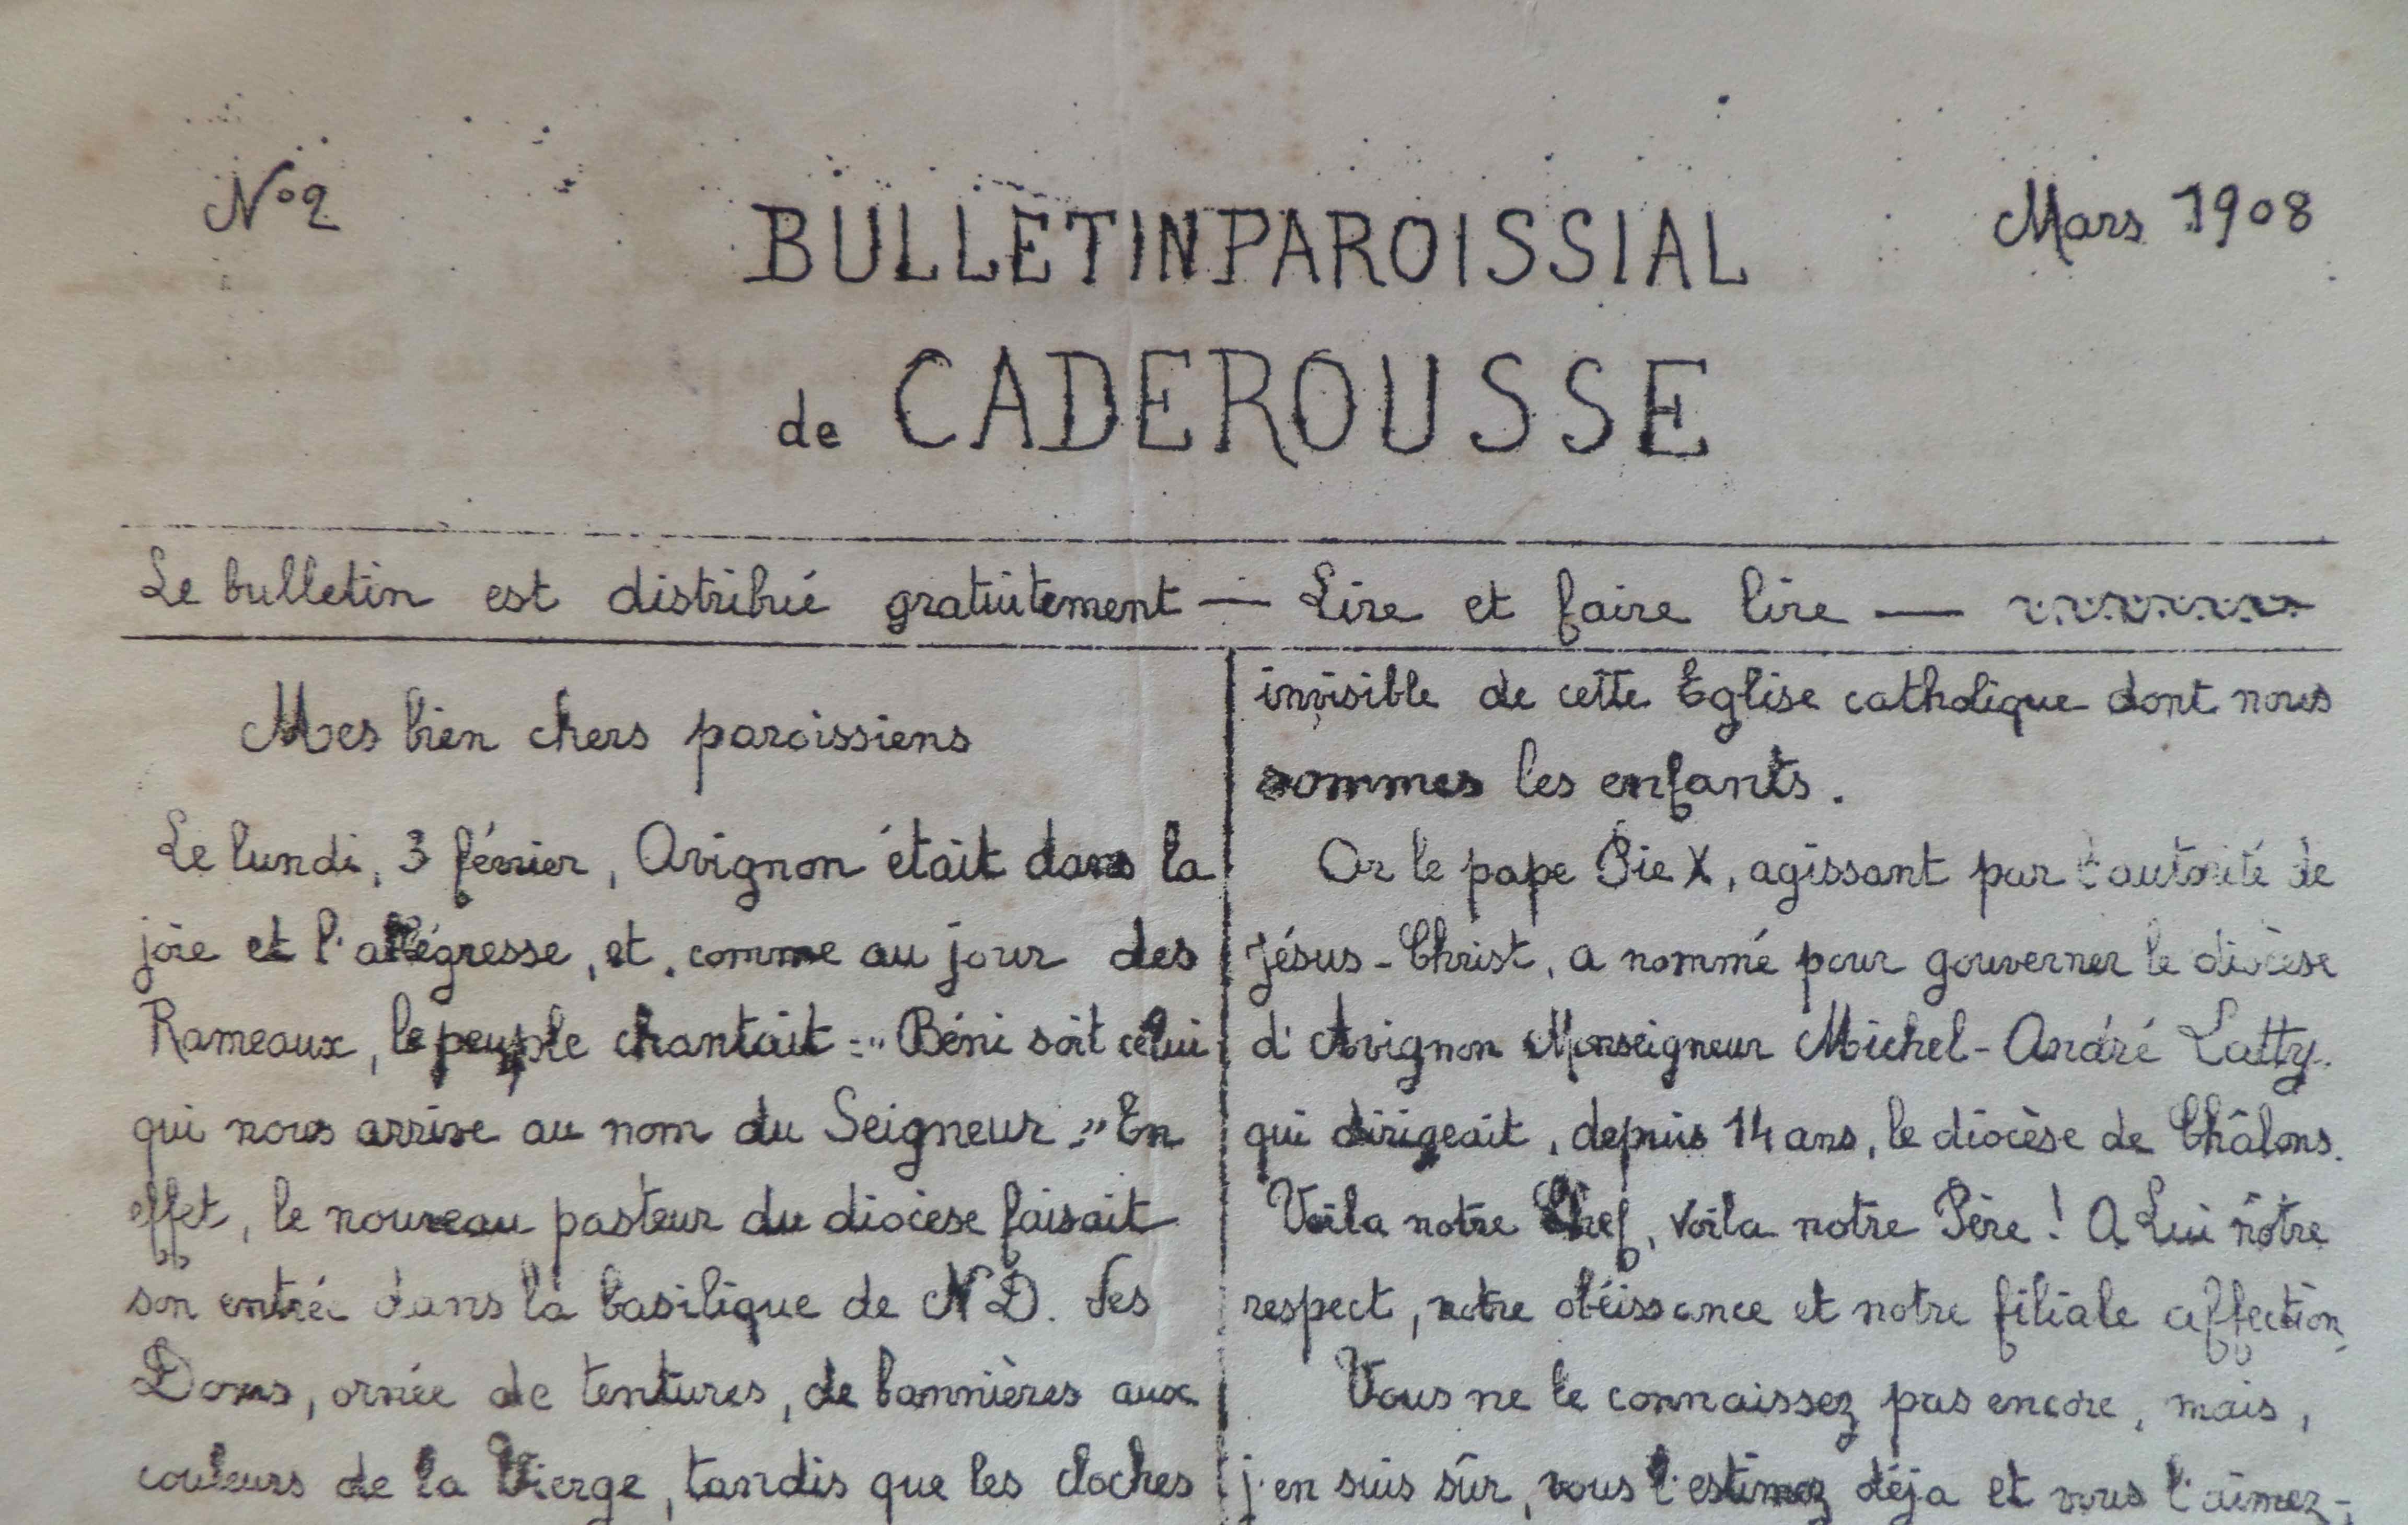 N° 2
Mars 1908
BULLETIN PAROISSIAL
de CADEROUSSE
Le bulletin est distribué gratuitement — Lire et faire lire —
Mes bien chers paroissiens
Le lundi, 3 février, Avignon était dans la
joie et l'allégresse, et, comme au jour des
Rameaux, le peuple chantait : "Béni soit celui
qui nous arrive au nom du Seigneur." En
effet, le nouveau pasteur du diocèse faisait
son entrée dans la basilique de N D. des
Doms, ornée de tentures, de bannières aux
couleurs de la Vierge, tandis que les cloches
invisible de cette Eglise catholique dont nous
sommes les enfants.
Or le pape Pie X, agissant par l'autorité de
Jésus-Christ, a nommé pour gouverner le diocèse
d'Avignon Monseigneur Michel-André Latty.
qui dirigeait, depuis 14 ans, le diocèse de Châlons.
Voila notre Chef, voila notre Père ! A Lui nôtre
respect, notre obéissance et notre filiale affection.
Vous ne le connaissez pas encore, mais,
j'en suis sûr, vous l'estimez déja et vous l'aimez-